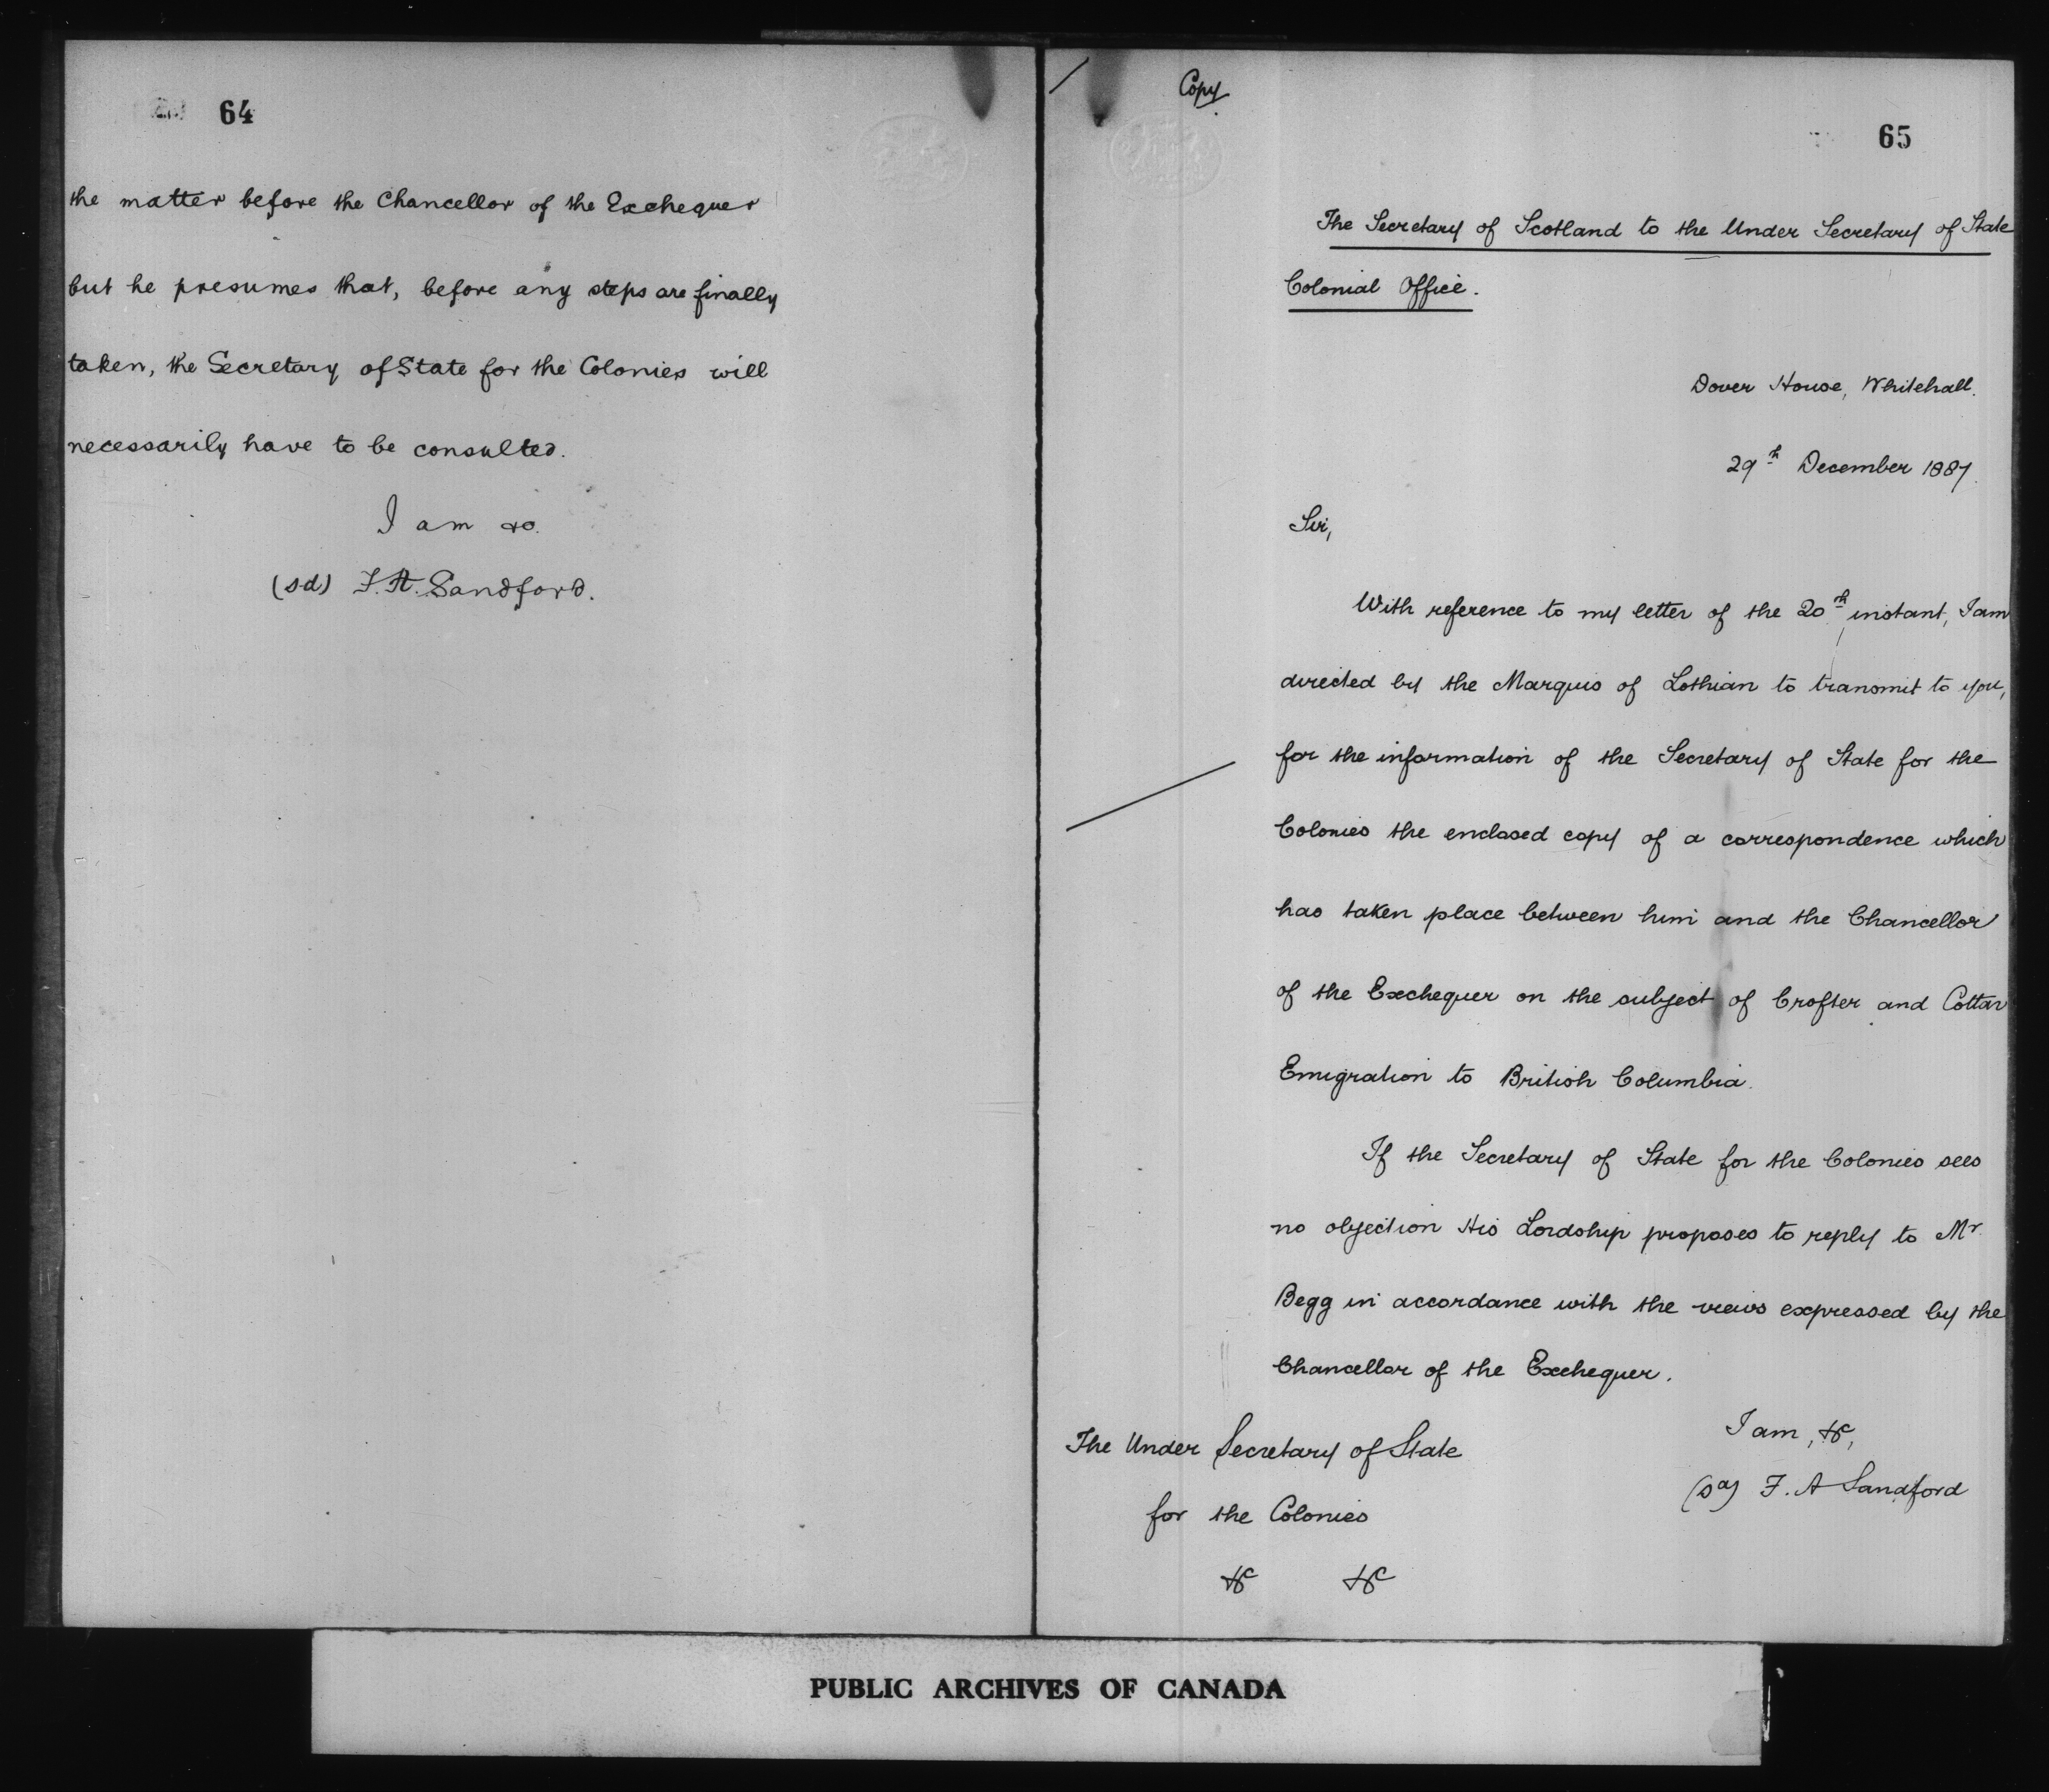 64
the matter before the Chancellor of the Exchequer
but he presumes that, before any steps are finally
taken, the Secretary of State for the Colonies will
necessarily have to be consulted.
I am &c.
(sd) F. R. Sandford.
Copy
65
The Secretary of Scotland to the Under Secretary of State
Colonial Office.
Dover House, Whitehall.
29th December 1887.
Sir,
With reference to my letter of the 20th instant, I am
directed by the Marquis of Lothian to transmit to you,
for the information of the Secretary of State for the
Colonies the enclosed copy of a correspondence which
has taken place between him and the Chancellor
of the Exchequer on the subject of Crofter and Cottar
Emigration to British Columbia.
If the Secretary of State for the Colonies sees
no objection His Lordship proposes to reply to Mr.
Begg in accordance with the views expressed by the
Chancellor of the Exchequer.
I am, &c,
(sd) F. A Sandford
The Under Secretary of State
for the Colonies
&c &c
PUBLIC ARCHIVES OF CANADA